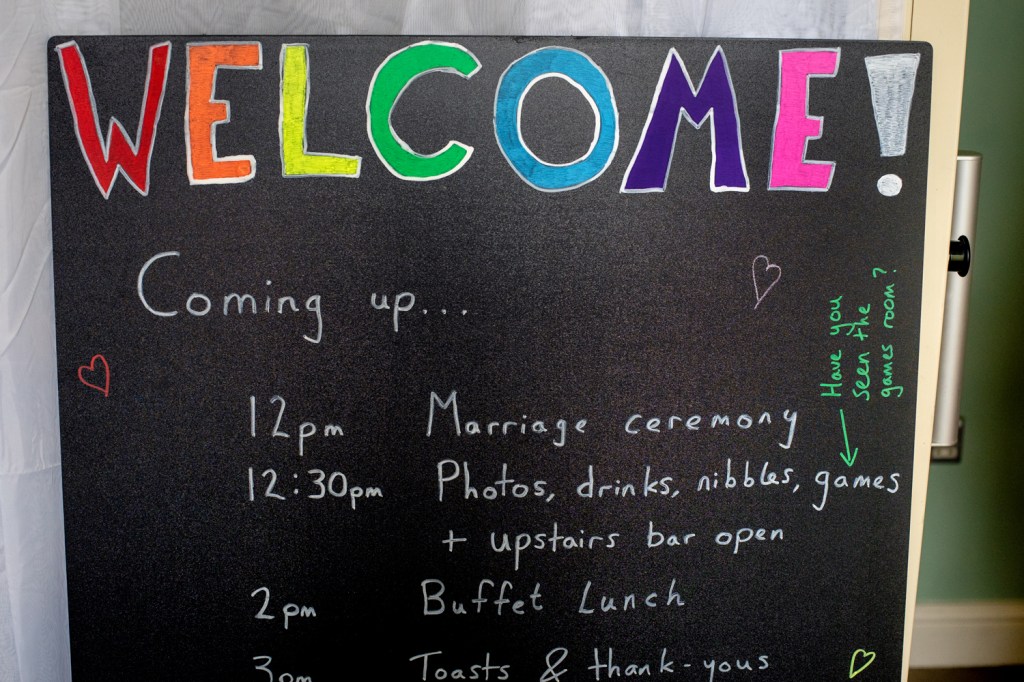 WELCOME!
Coming up...
Have you
seen the
games room?
12pm Marriage ceremony
12:30pm Photos, drinks, nibbles, games
+ upstairs bar open
2pm Buffet Lunch
3pm Toasts & thank-yous